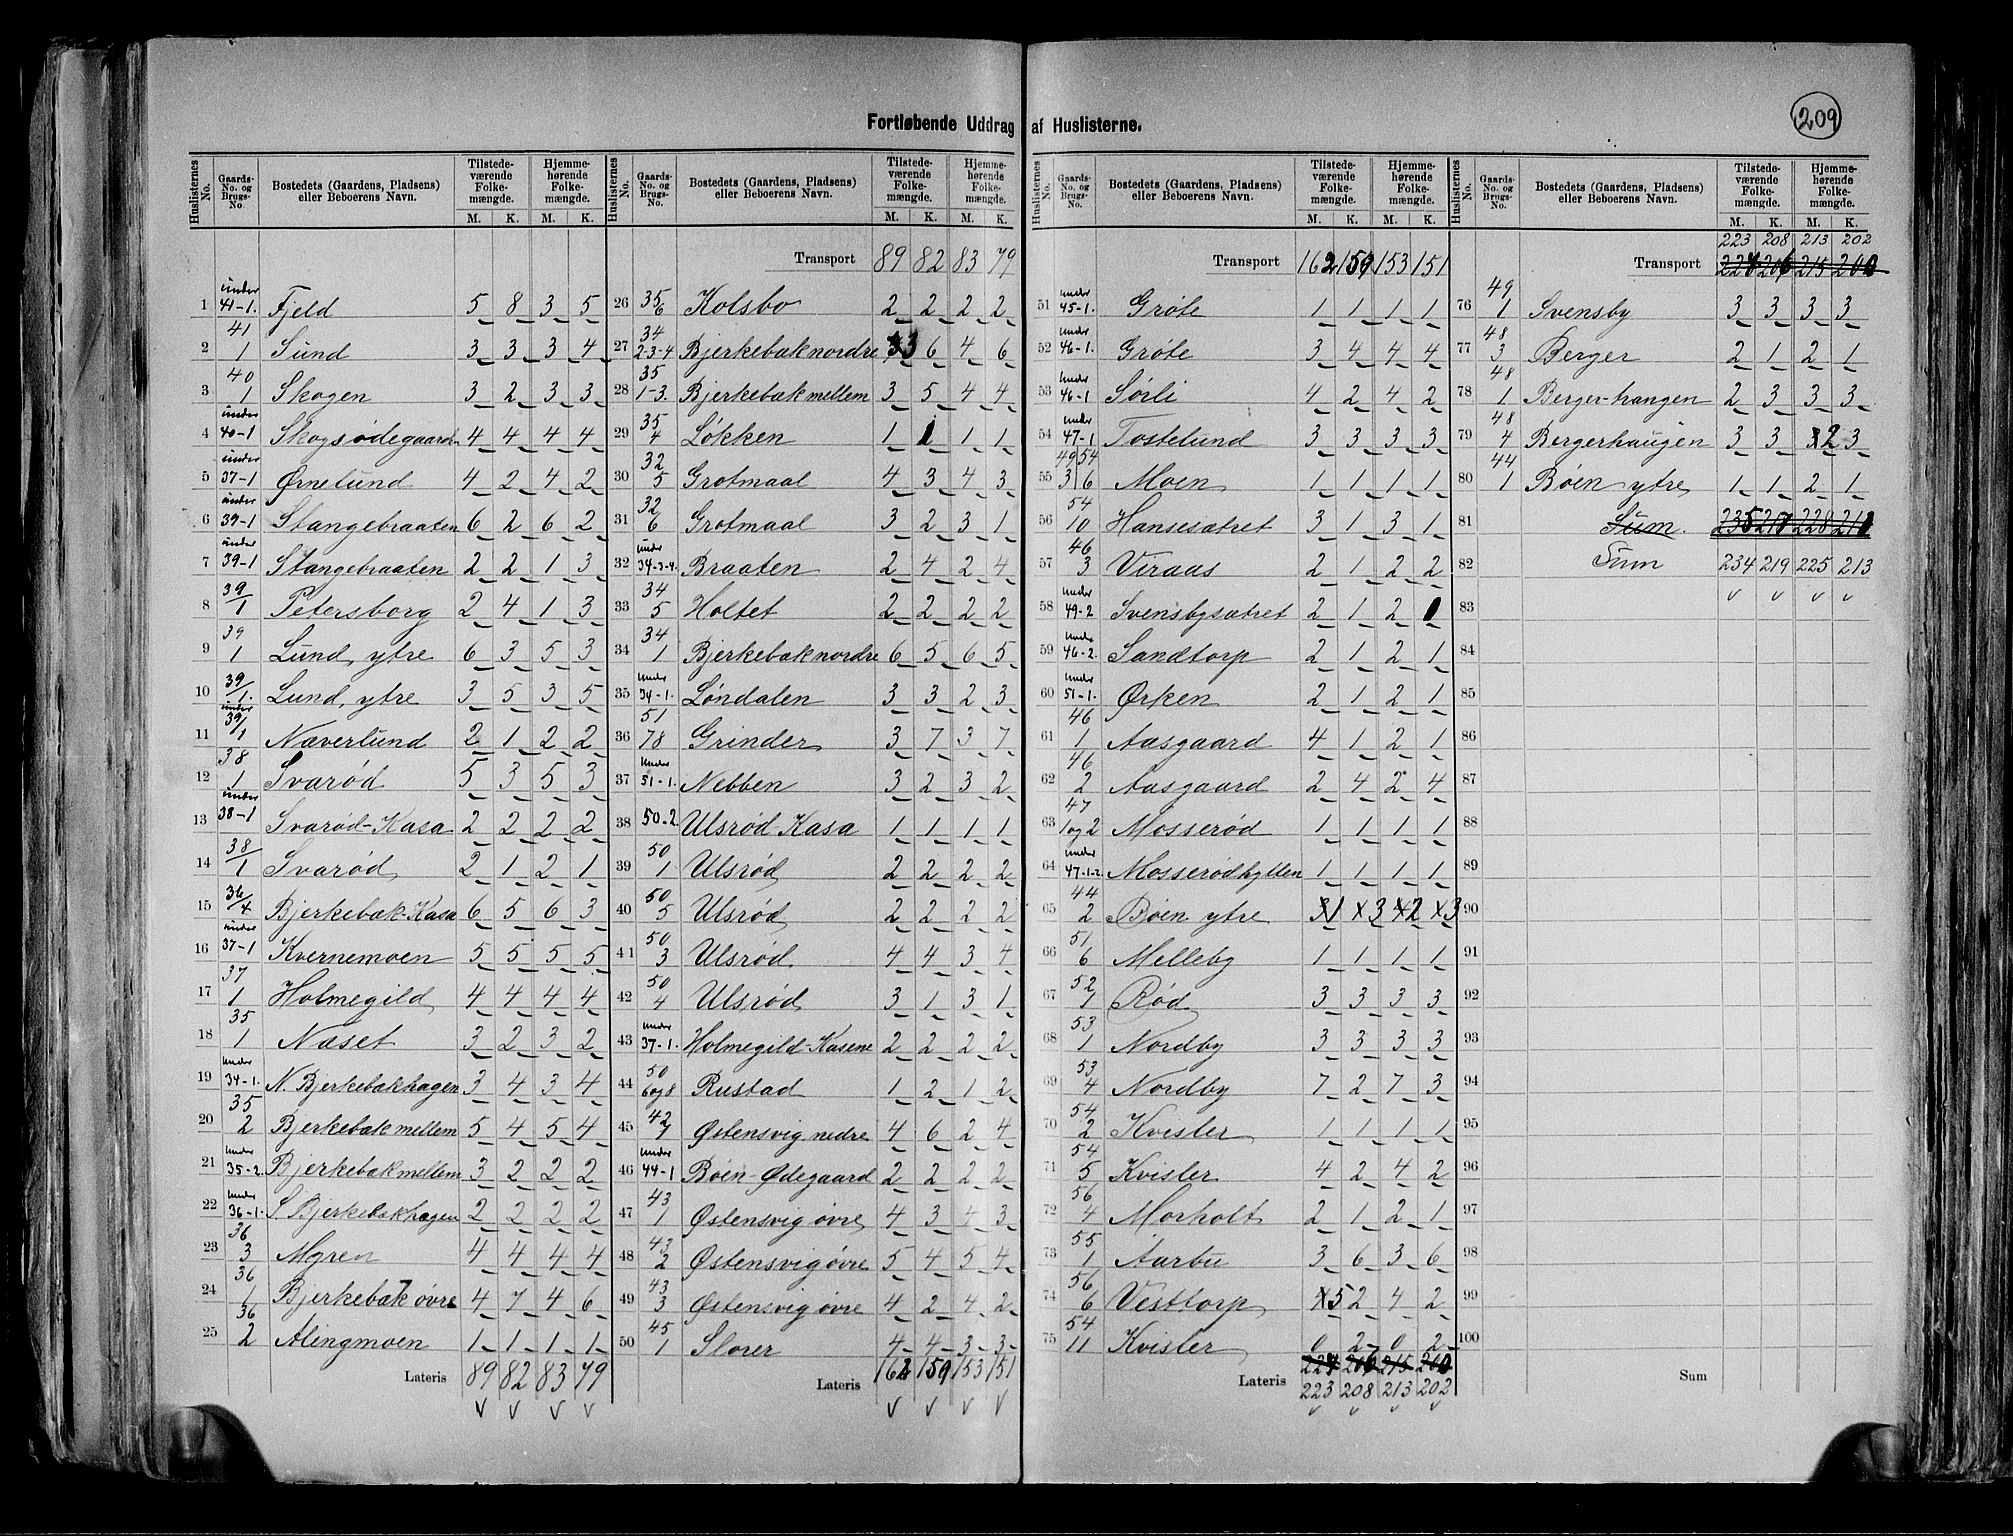 Fortløbende Uddrag af Huslisterne.
209
Huslisternes No. | Gaards-No. og Brugs-No. | Bostedets (Gaardens, Pladsens) eller Beboerens Navn. | Tilstedeværende Folkemængde. M. K. | Hjemmehørende Folkemængde. M. K.
1 under 41-1. Fjeld 5 8 3 5
2 41 1 Sund 3 3 3 4
3 40 1 Skogen 3 2 3 3
4 under 40-1 Skogsødegaarden 4 4 4 4
5 under 37-1 Ørnelund 4 2 4 2
6 under 39-1 Stangebraaten 6 2 6 2
7 under 39-1 Stangebraaten 2 2 1 3
8 39/1 Petersborg 2 4 1 3
9 39 1 Lund, ytre 6 3 5 3
10 39/1. Lund, ytre 3 5 3 5
11 under 39/1 Næverlund 2 1 2 2
12 38 1 Svarød 5 3 5 3
13 under 38-1 Svarød-Kasa 2 2 2 2
14 38/1 Svarød 2 1 2 1
15 36/4 Bjerkebæk-Kasa 6 5 6 3
16 under 37-1 Kvernemoen 5 5 5 5
17 37 1 Holmegild 4 4 4 4
18 35 1 Næset 3 2 3 2
19 under 34-1. N. Bjerkebækhagen 3 4 3 4
20 35 2 Bjerkebæk mellem 5 4 5 4
21 under 35-2. Bjerkebæk mellem 3 2 2 2
22 under 36-1. S. Bjerkebækhagen 2 2 2 2
23 36 3 Myren 4 4 4 4
24 36 1 Bjerkebæk øvre 4 7 4 6
25 36 2 Alingmoen 1 1 1 1
Lateris 89 82 83 79
Transport 89 82 83 79
26 35/6 Kolsbo 2 2 2 2
27 34 2-3-4 Bjerkebæk nordre 3 6 4 6
28 35 1-3. Bjerkebæk mellem 3 5 4 4
29 35 4 Løkken 1 1 1 1
30 32 5 Grotmaal 4 3 4 3
31 32 6 Grotmaal 3 2 3 1
32 under 34-3-4. Braaten 2 4 2 4
33 34 5 Holtet 2 2 2 2
34 34 1 Bjerkebæk nordre 6 5 6 5
35 under 34-1. Løndalen 3 3 2 3
36 51 78 Grinder 3 7 3 7
37 under 51-1. Nebben 3 2 3 2
38 50-2. Ulsrød Kasa 1 1 1 1
39 50 1 Ulsrød 2 2 2 2
40 50 5 Ulsrød 2 2 2 2
41 50 3 Ulsrød 4 4 3 4
42 50 4 Ulsrød 3 1 3 1
43 under 37-1. Holmegild-Kasene 2 2 2 2
44 50 6og8 Rustad 1 2 1 2
45 42 1 Østensvig nedre 4 6 2 4
46 under 44-1 Bøen-Ødegaard 2 2 2 2
47 43 1 Østensvig øvre 4 3 4 3
48 43 2 Østensvig øvre 5 4 5 4
49 43 3 Østensvig øvre 4 2 4 2
50 45 1 Slorer 4 4 3 3
Lateris 162 159 153 151
Transport 162 159 153 151
51 under 45-1. Grøte 1 1 1 1
52 under 46-1. Grøte 3 4 4 4
53 under 46-1 Sørli 4 2 4 2
54 under 47-1 Tostelund 3 3 3 3
55 49 54 3 6 Moen 1 1 1 1
56 54 10 Hansesætret 3 1 3 1
57 46 3 Viraas 2 1 2 2
58 under 49-2 Svensbysætret 2 1 2 1
59 under 46-2. Sandtorp 2 1 2 1
60 under 51-1. Ørken 2 1 2 1
61 46 1 Aasgaard 4 1 2 1
62 46 2 Aasgaard 2 4 2 4
63 47 1og2 Mosserød 1 1 1 1
64 under 47-1-2. Mosserødhytten 1 1 1 1
65 44 2 Bøen ytre 1 3 2 3
66 51 6 Melleby 1 1 1 1
67 52 1 Rød 3 3 3 3
68 53 1 Nordby 3 3 3 3
69 53 4 Nordby 7 2 7 3
70 54 2 Kvisler 1 1 1 1
71 54 5 Kvisler 4 2 4 2
72 56 4 Morholt 2 1 2 1
73 55 1 Aarbu 3 6 3 6
74 56 6 Vesttorp 5 2 4 2
75 54 11 Kvisler 0 2 0 2
Lateris 223 208 213 202
223 208 213 202
Transport
76 49 1 Svensby 3 3 3 3
77 48 3 Berger 2 1 2 1
78 48 1 Berger-hangen 2 3 3 3
79 48 4 Bergerhaugen 3 3 2 3
80 44 1 Bøen ytre 1 1 2 1
81 Sum.
82 Sum 234 219 225 213
83
84
85
86
87
88
89
90
91
92
93
94
95
96
97
98
99
100
Sum